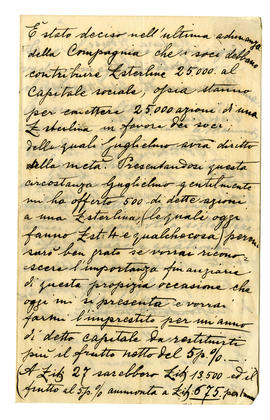 È stato deciso nell'ultima adunanza
della Compagnia che i soci debbano
contribuire Lsterline 25.000 al
Capitale sociale, ossia stanno
per emettere 25.000 azioni di una
Lsterlina in favore dei soci,
delle quali Guglielmo avrà diretto
alla metà. Presentandosi questa
circostanza Guglielmo gentilmente
mi ha offerto 500 di dette azioni
a una Lsterlina, (le quali oggi
fanno Lst. 4 e qualchecosa) per cui
sarò ben grato se vorrai ricono-
scere l'importanza finanziaria
di questa propizia occasione che
oggi mi si presenta e vorrai
farmi l'imprestito per un anno
di detto capitale da restituirti
più il frutto netto del 5 p.%. —
A Lit. 27 sarebbero Lit. 13.500 ed il
frutto al 5 p.% ammonta a Lit. 675. per